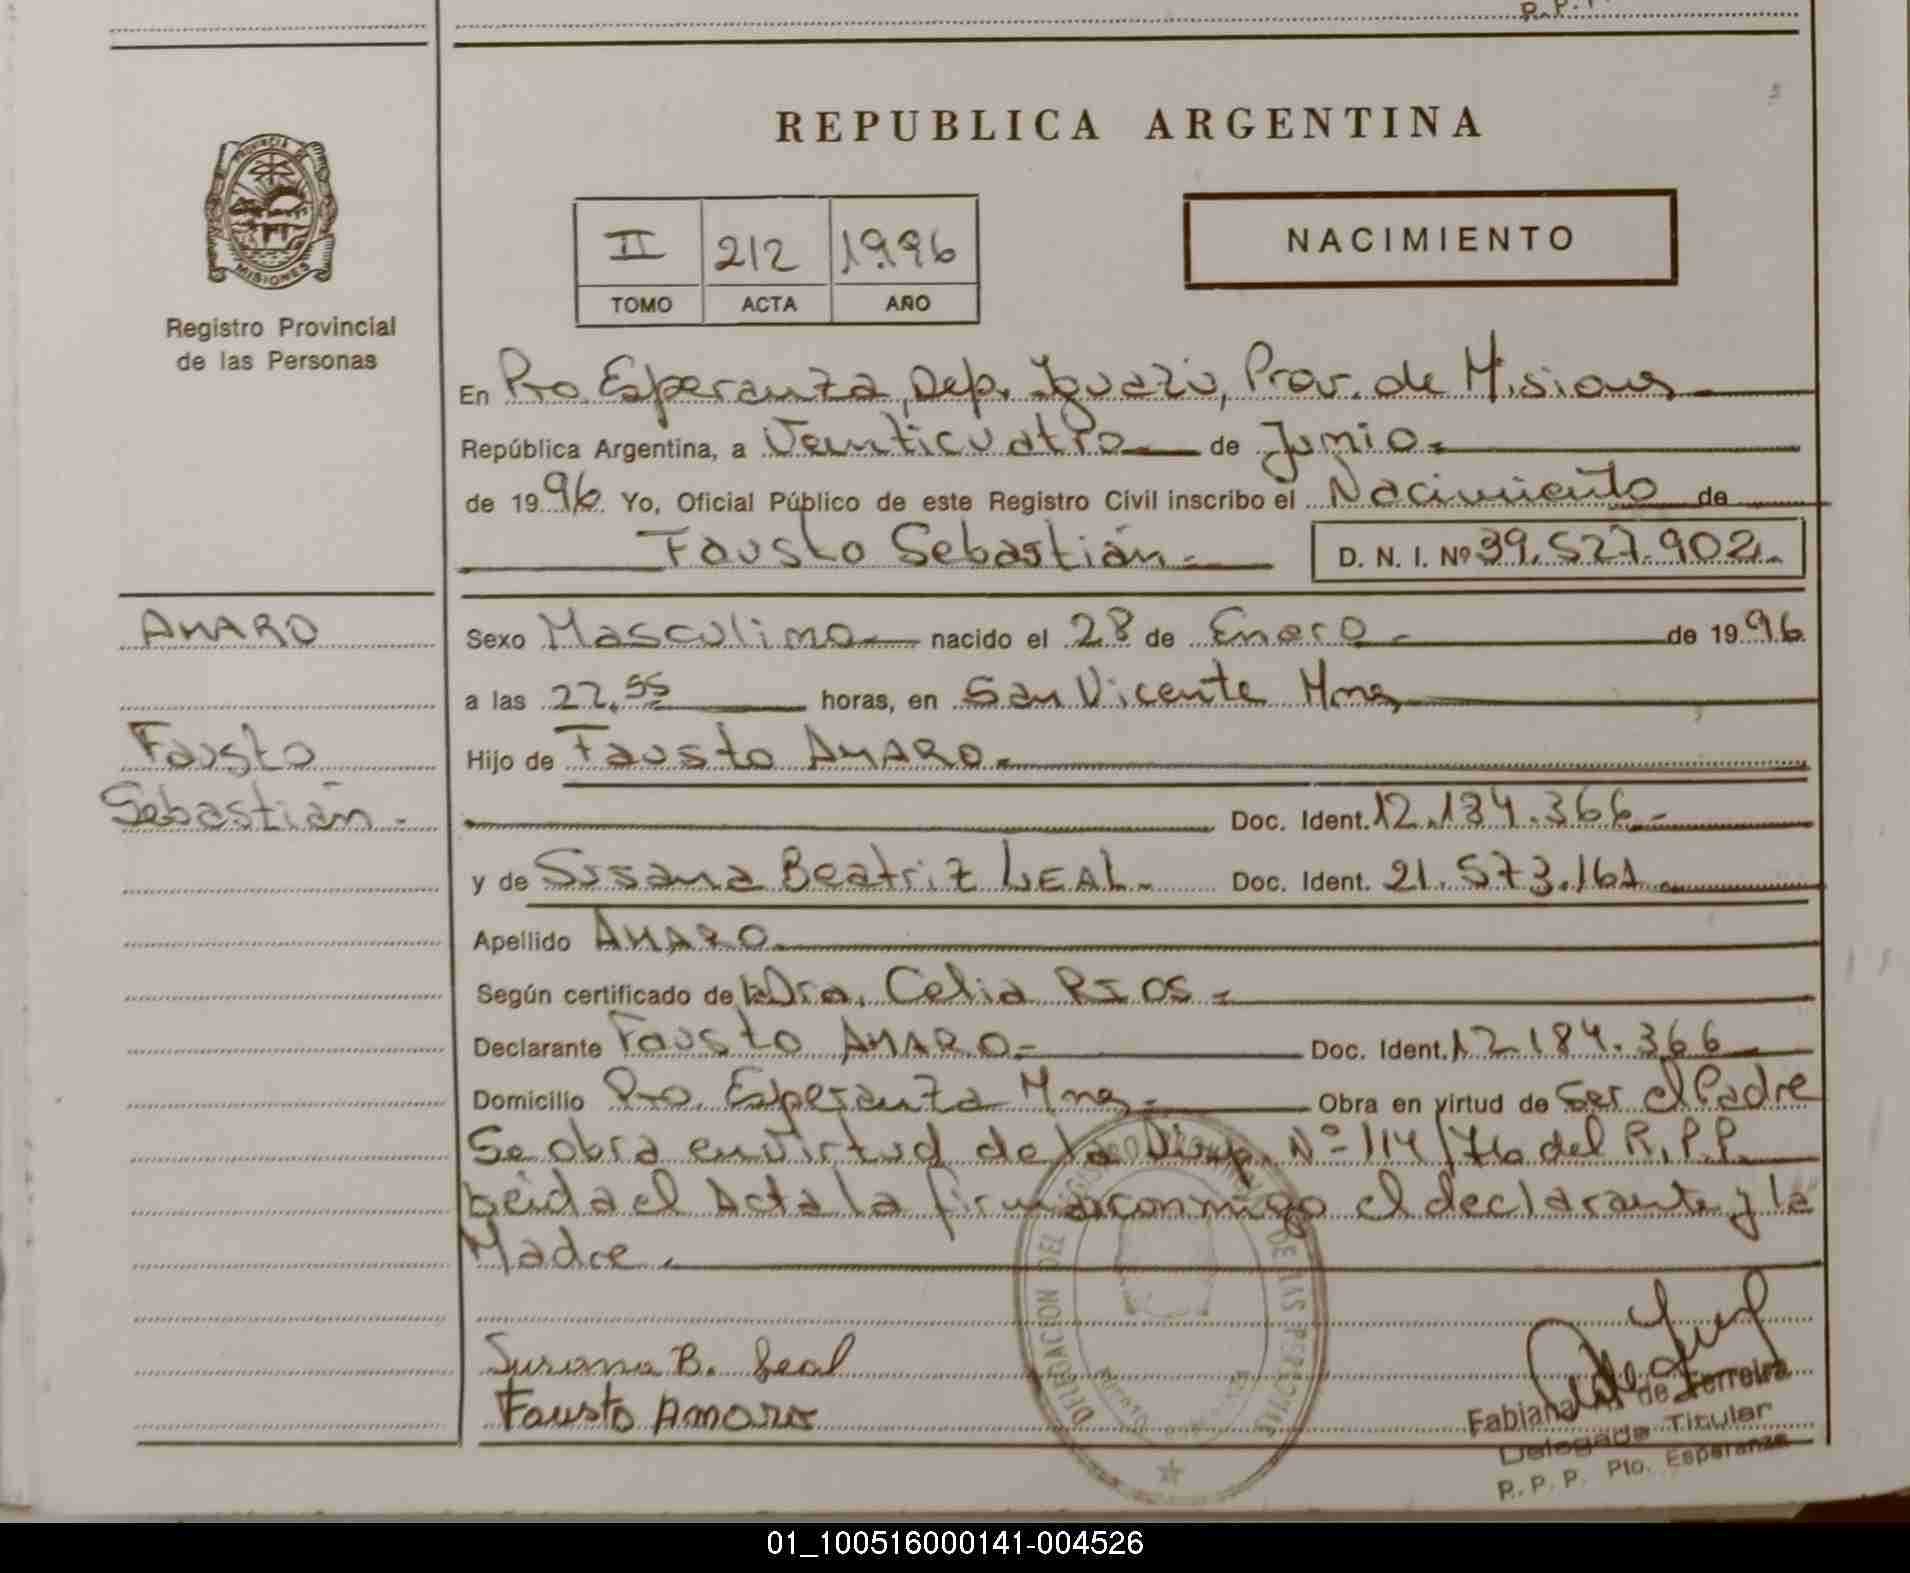 R.P.P.
REPUBLICA ARGENTINA
PROVINCIA DE
MISIONES
Registro Provincial
de las Personas
II 212 1996
TOMO ACTA AÑO
NACIMIENTO
En Pto. Esperanza, Dep. Iguazú, Prov. de Misiones
República Argentina, a Veinticuatro de Junio
de 1996 Yo, Oficial Público de este Registro Civil inscribo el Nacimiento de
Fausto Sebastián D. N. I. Nº 39.527.902
AMARO
Sexo Masculino nacido el 28 de Enero de 1996
a las 22,55 horas, en San Vicente Mnes
Fausto
Sebastián
Hijo de Fausto AMARO
Doc. Ident. 12.184.366
y de Susana Beatriz LEAL Doc. Ident. 21.573.161
Apellido AMARO
Según certificado de la Dra. Celia RIOS
Declarante Fausto AMARO Doc. Ident. 12.184.366
Domicilio Pto. Esperanza Mnes Obra en virtud de Ser el Padre
Se obra en virtud de la Disp. Nº 114/76 del R.P.P.
Leida el Acta la firma conmigo el declarante y la
Madre.
DELEGACION DEL REGISTRO PROVINCIAL DE LAS PERSONAS
Susana B. Leal
Fausto Amaro
Fabiana de Ferreira
Delegada Titular
R.P.P. Pto. Esperanza
01_100516000141-004526